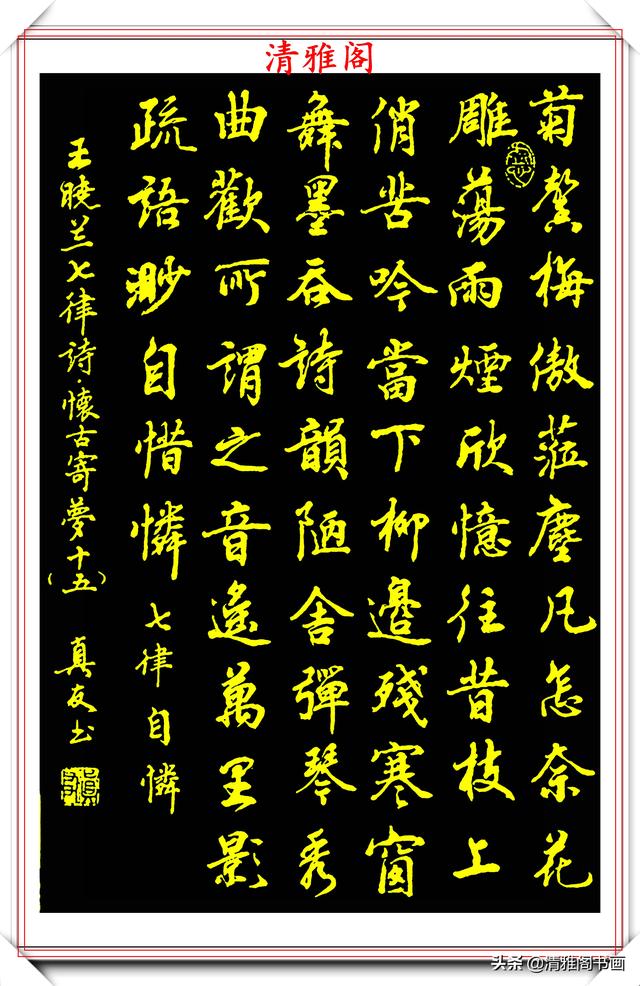 清雅阁
菊馨梅傲蒞塵凡怎奈花
雕蕩雨煙欣憶往昔枝上
俏苦吟當下柳邊殘寒窗
舞墨吞詩韻陋舍彈琴秀
曲歡所謂之音遙萬里影
疏語渺自惜憐 七律自憐
王曉兰七律詩·懷古寄夢十(五) 真友书
头条 @清雅阁书画